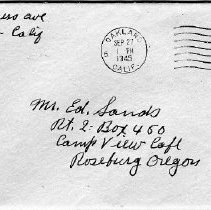 ess ave
Calif
OAKLAND
SEP 27
1 PM
1945
CALIF.
Mr. Ed. Sands
Rt. 2 - Box 460
Camp View Café
Roseburg Oregon